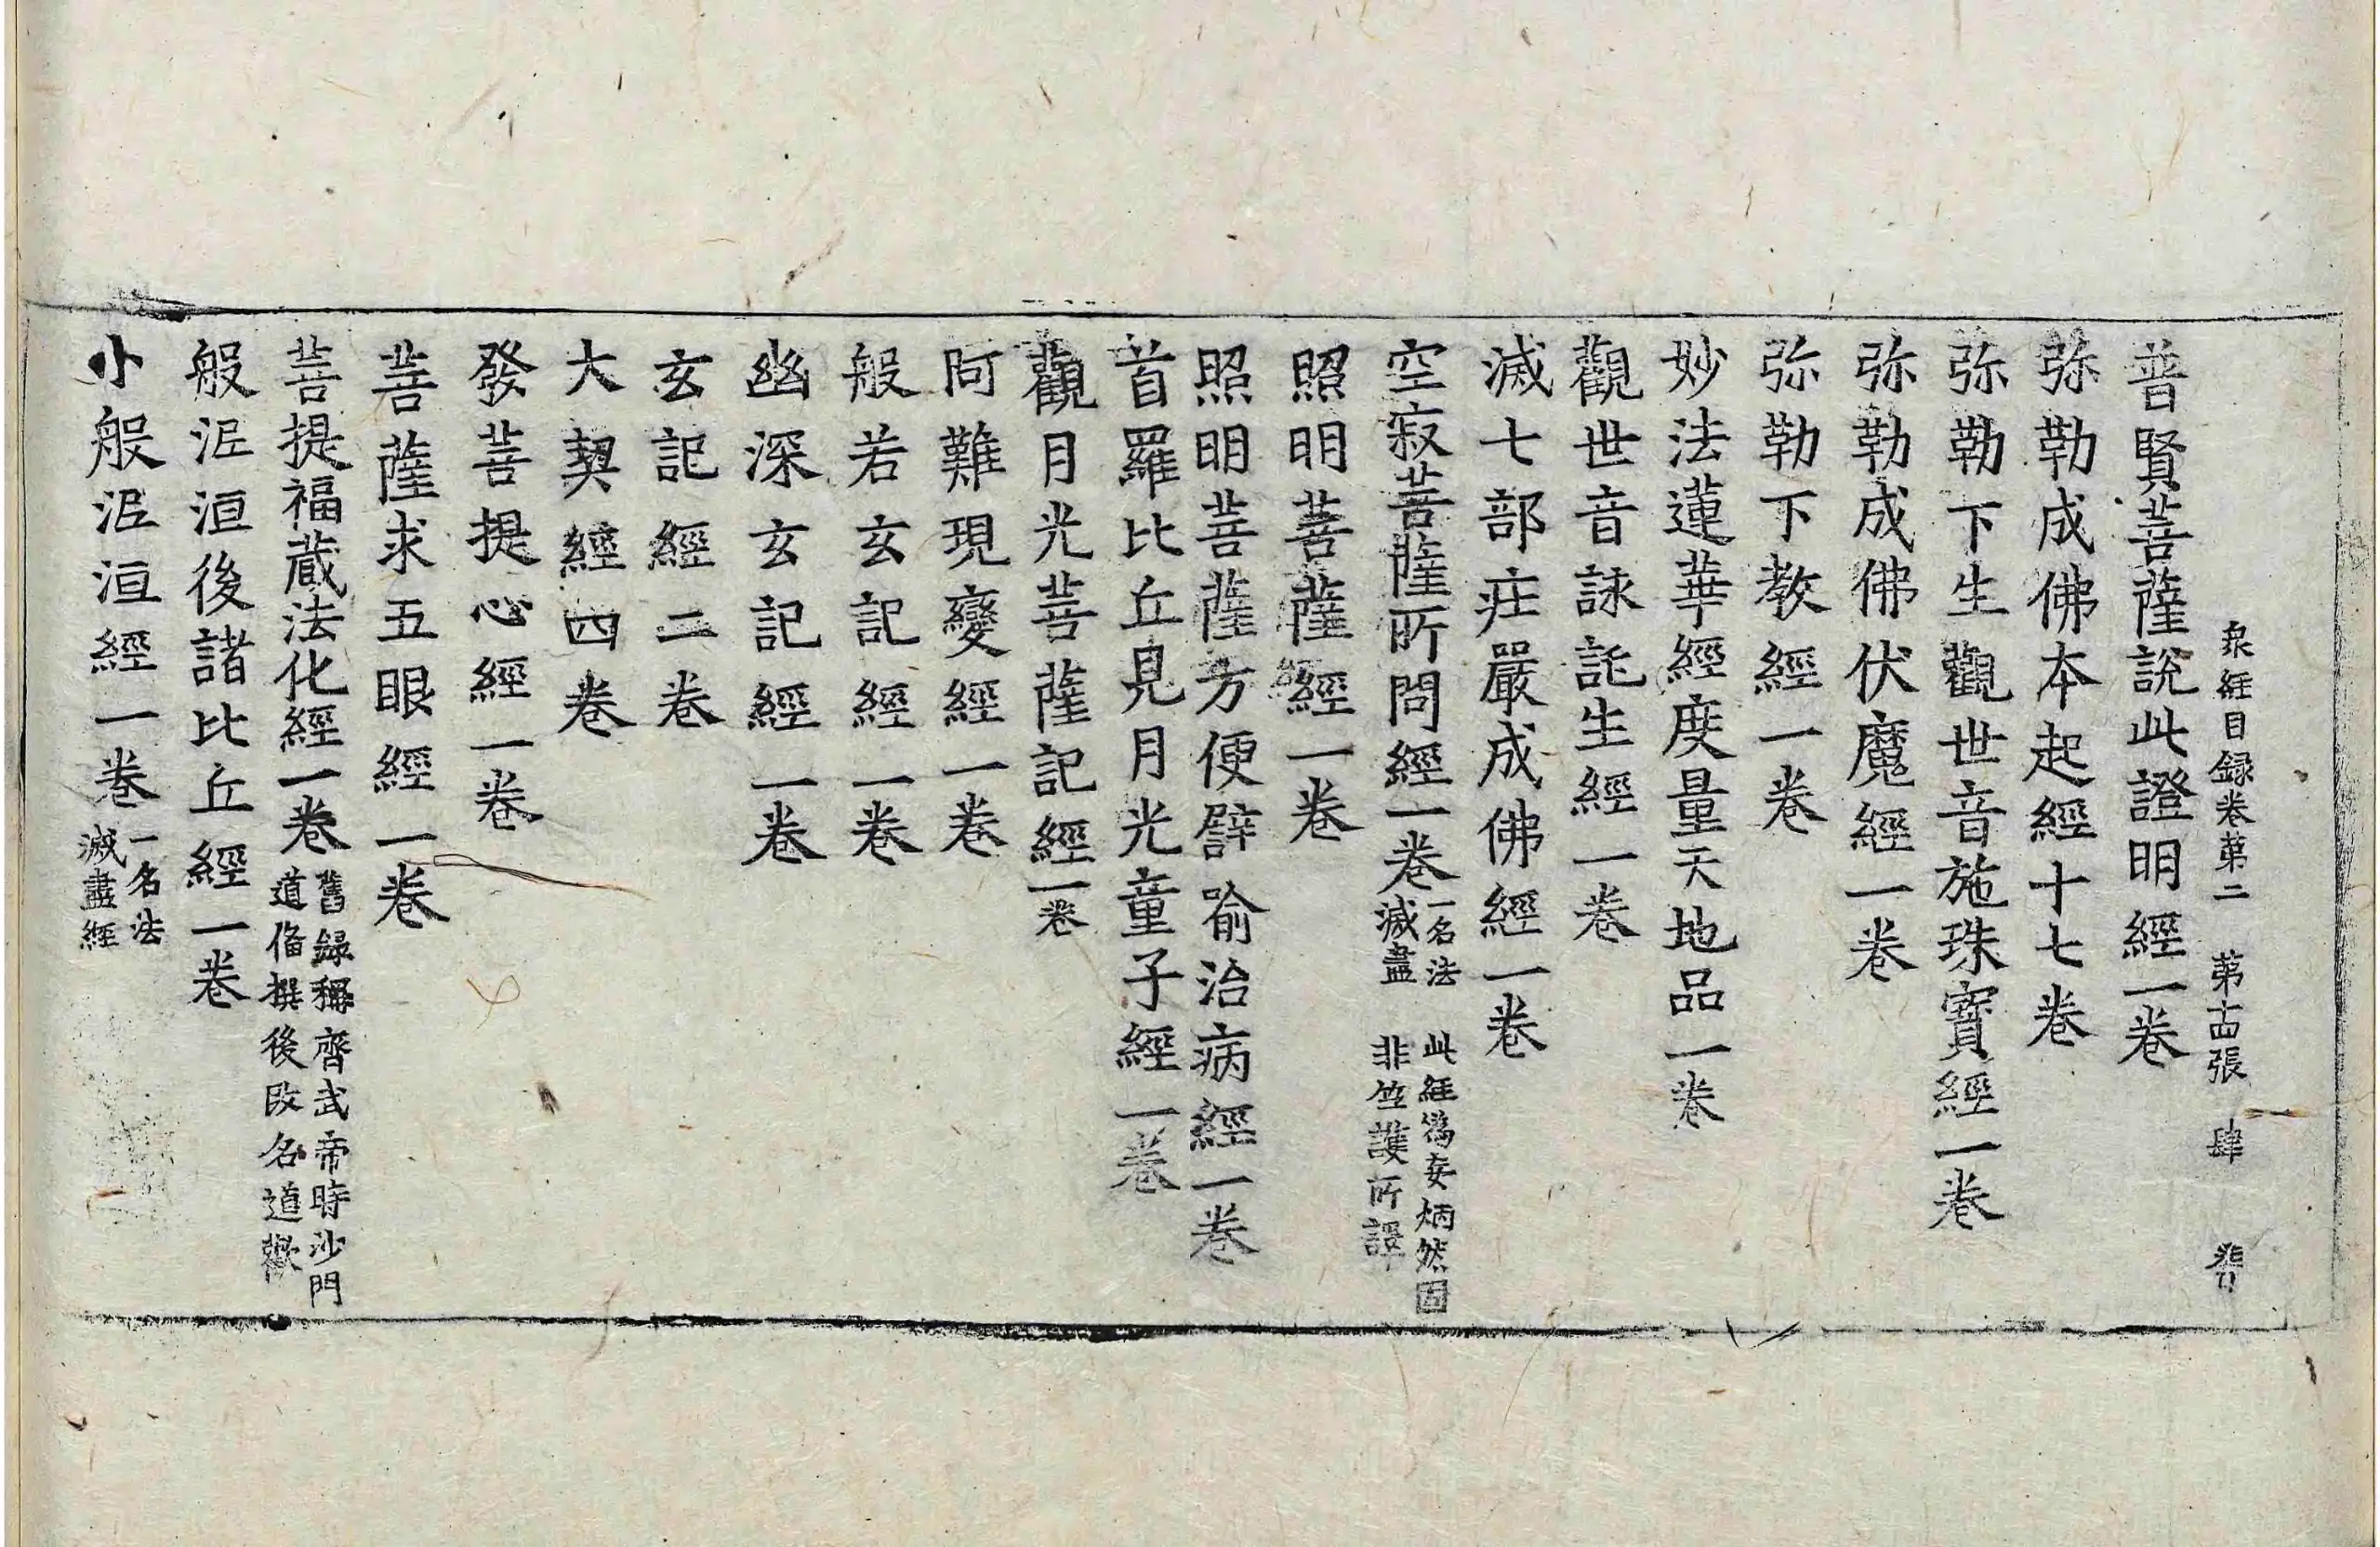 衆經目録卷第二　第十四張　肆
普賢菩薩說此證明經一卷
弥勒成佛本起經十七卷
弥勒下生觀世音施珠寶經一卷
弥勒成佛伏魔經一卷
弥勒下教經一卷
妙法蓮華經度量天地品一卷
觀世音詠託生經一卷
滅七部莊嚴成佛經一卷
空寂菩薩所問經一卷
一名法
滅盡
此經僞妄炳然固
非竺護所譯
照明菩薩經一卷
照明菩薩方便譬喻治病經一卷
首羅比丘見月光童子經一卷
觀月光菩薩記經一卷
阿難現變經一卷
般若玄記經一卷
幽深玄記經一卷
玄記經二卷
大契經四卷
發菩提心經一卷
菩薩求五眼經一卷
菩提福藏法化經一卷
舊録稱齊武帝時沙門
道備撰後改名道歡
般泥洹後諸比丘經一卷
小般泥洹經一卷
一名法
滅盡經